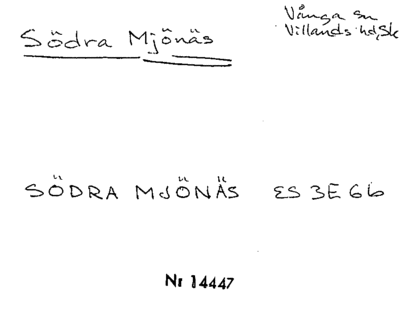 Södra Mjönäs
Vånga sn
Villands hd, Sk
SÖDRA MJÖNÄS ES 3E 6b
Nr 14447